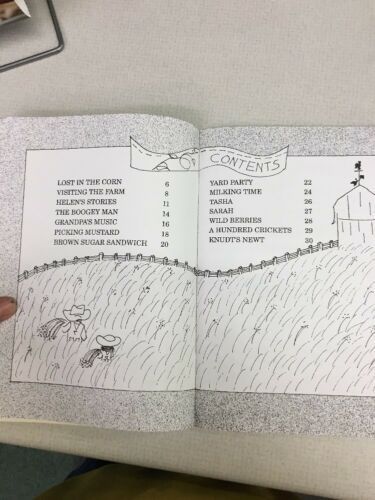 CONTENTS
LOST IN THE CORN 6
VISITING THE FARM 8
HELEN'S STORIES 11
THE BOOGEY MAN 14
GRANDPA'S MUSIC 16
PICKING MUSTARD 18
BROWN SUGAR SANDWICH 20
YARD PARTY 22
MILKING TIME 24
TASHA 26
SARAH 27
WILD BERRIES 28
A HUNDRED CRICKETS 29
KNUDT'S NEWT 30